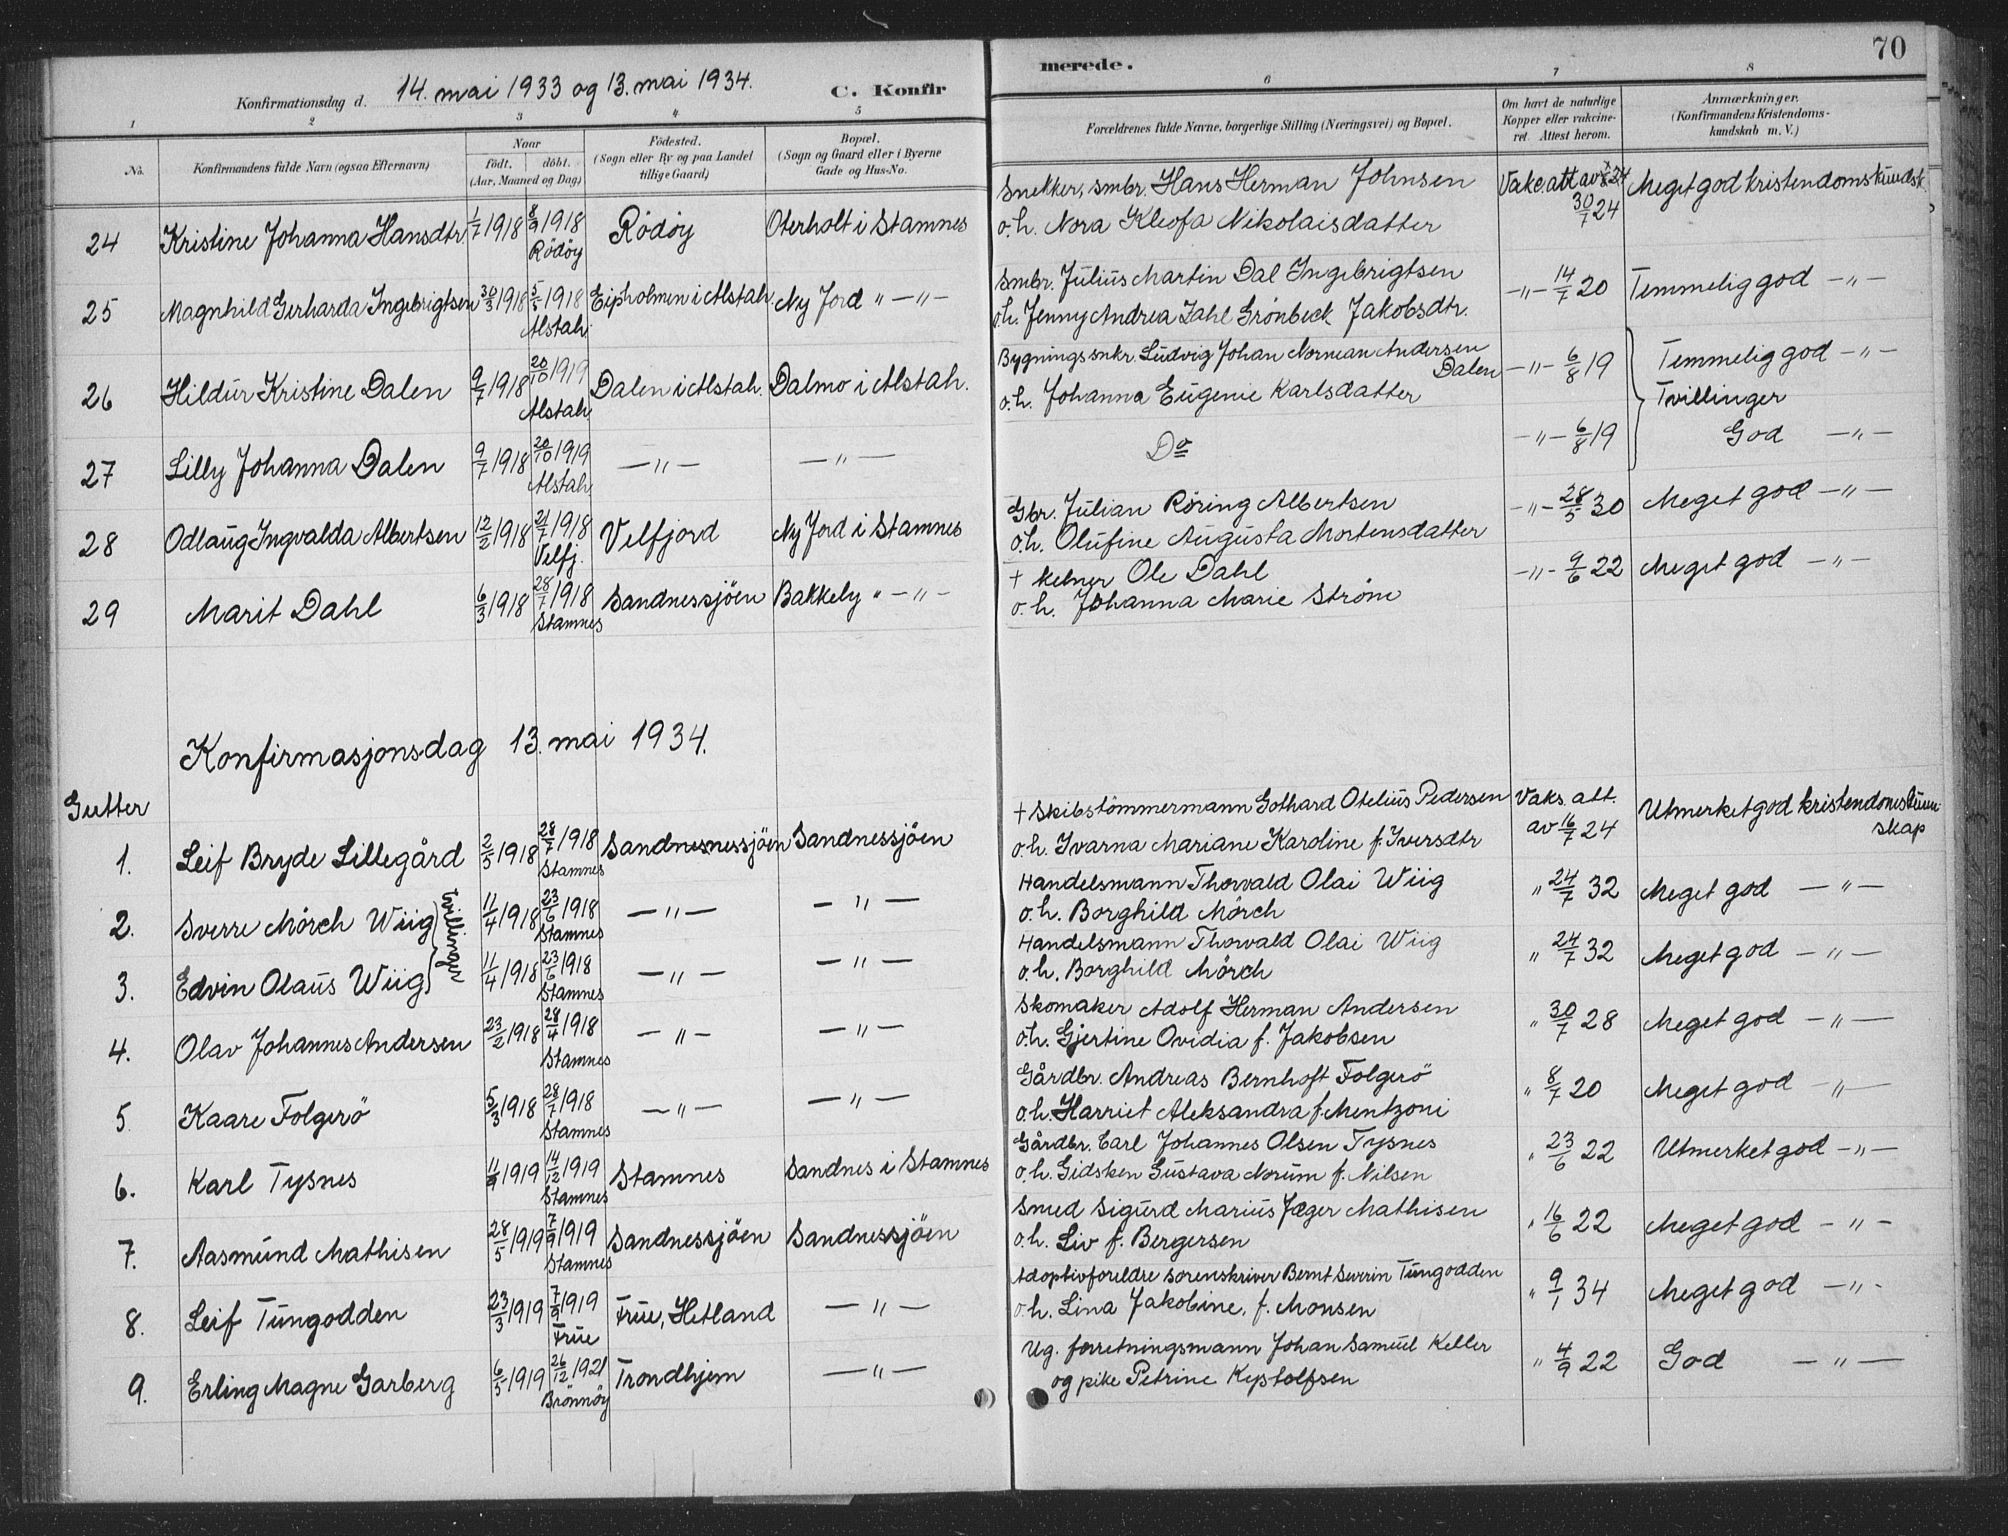 70
Konfirmationsdag d. 14. mai 1933 og 13. mai 1934. C. Konfir
merede.
1 2 3 4 5 6 7 8
No. Konfirmandens fulde Navn (ogsaa Efternavn) Naar födt. döbt. (Aar, Maaned og Dag) Födested. (Sogn eller By og paa Landet tillige Gaard) Bopæl. (Sogn og Gaard eller i Byerne Gade og Hus-No. Forældrenes fulde Navne, borgerlige Stilling (Næringsvei) og Bopæl. Om havt de naturlige Kopper eller vakcineret. Attest herom. Anmærkninger. (Konfirmandens Kristendomskundskab m. V.)
Snekker, smbr. Hans Herman Johnsen Vakc. att av 30/7 24 Meget god kristendomskundsk.
24 Kristine Johanna Hansdtr 1/7 1918 8/9 1918 Rödöy Rödöy Oterholt i Stamnes o. h. Nora Kleofa Nikolaisdatter
Smbr. Julius Martin Dal Ingebrigtsen
25 Magnhild Gerharda Ingebrigtsen 30/3 1918 5/5 1918 Alstah. Eipholmen i Alstah. Ny Jord " — " — o.h. Jenny Andrea Zahl Grønbeck Jakobsdtr. — " — 14/7 20 Temmelig god — " —
Bygningssnkr. Ludvig Johan Norman Andersen Dalen
26 Hildur Kristine Dalen 9/7 1918 20/10 1919 Alstah Dalen i Alstah. Dalmo i Alstah. o. h. Johanna Eugenie Karlsdatter — " — 6/8 19 Temmelig god — " —
Tvillinger
27 Lilly Johanna Dalen 9/7 1918 20/10 1919 Alstah — " — — " — Do — " — 6/8 19 God — " —
Gbr. Julian Röring Albertsen
28 Odlaug Ingvalda Albertsen 12/2 1918 21/7 1918 Velfj. Velfjord Ny Jord i Stamnes o. h. Olufine Augusta Mortensdatter — " — 28/5 30 Meget god — " —
+ Kelner Ole Dahl
29 Marit Dahl 6/3 1918 28/7 1918 Stamnes Sandnessjöen Bakkely " — " — o. h. Johanna Marie Ström — " — 9/6 22 Meget god — " —
Konfirmasjonsdag 13. mai 1934.
Gutter
+ Skibstömmermann Gothard Otelius Pedersen Vaks. att. av 16/7 24 Utmerket god kristendomskunnskap
1. Leif Bryde Lillegård 2/5 1918 28/7 1918 Stamnes Sandnesnessjöen Sandnessjöen o.h. Ivarna Mariane Karoline f. Iversdtr
Handelsmann Thorvald Olai Wiig
2. Sverre Mörch Wiig 11/4 1918 23/6 1918 Stamnes — " — — " — o. h. Borghild Mörch " 24/7 32 Meget god — " —
Tvillinger
Handelsmann Thorvald Olai Wiig
3. Edvin Olaus Wiig 11/4 1918 23/6 1918 Stamnes — " — — " — o. h. Borghild Mörch " 24/7 32 Meget god — " —
Skomaker Adolf Herman Andersen
4. Olav Johannes Andersen 23/2 1918 28/4 1918 Stamnes — " — — " — o.h. Gjertine Ovidia f. Jakobsen " 30/7 28 Meget god — " —
Gårdbr. Andreas Bernhoft Folgerö
5 Kaare Folgerö 5/3 1918 28/7 1918 Stamnes — " — — " — o.h. Harriet Aleksandra f. Mentzoni " 8/7 20 Meget god — " —
Gårdbr. Carl Johannes Olsen Tysnes
6. Karl Tysnes 14/12 1919 Stamnes Stamnes Sandnes i Stamnes o. h. Gidsken Gustava Norum f. Nilsen " 23/6 22 Utmerket god — " —
Smed Sigurd Marius Jæger Mathisen
7. Aasmund Mathisen 28/5 1919 7/9 1919 Stamnes Sandnessjöen Sandnessjöen o. h. Liv f. Bergersen " 16/6 22 Meget god — " —
Adoptivforeldre Sorenskriver Bernt Severin Tungodden
8. Leif Tungodden 23/3 1919 7/9 1919 Frue Frue, Hetland — " — o. h. Lina Jakobine, f. Monsen " 9/1 34 Meget god — " —
Ug. forretningsmann Johan Samuel Keller
9. Erling Magne Garberg 6/5 1919 26/12 1921 Brönnöy Trondhjem — " — og pike Petrine " 4/9 22 God — " —